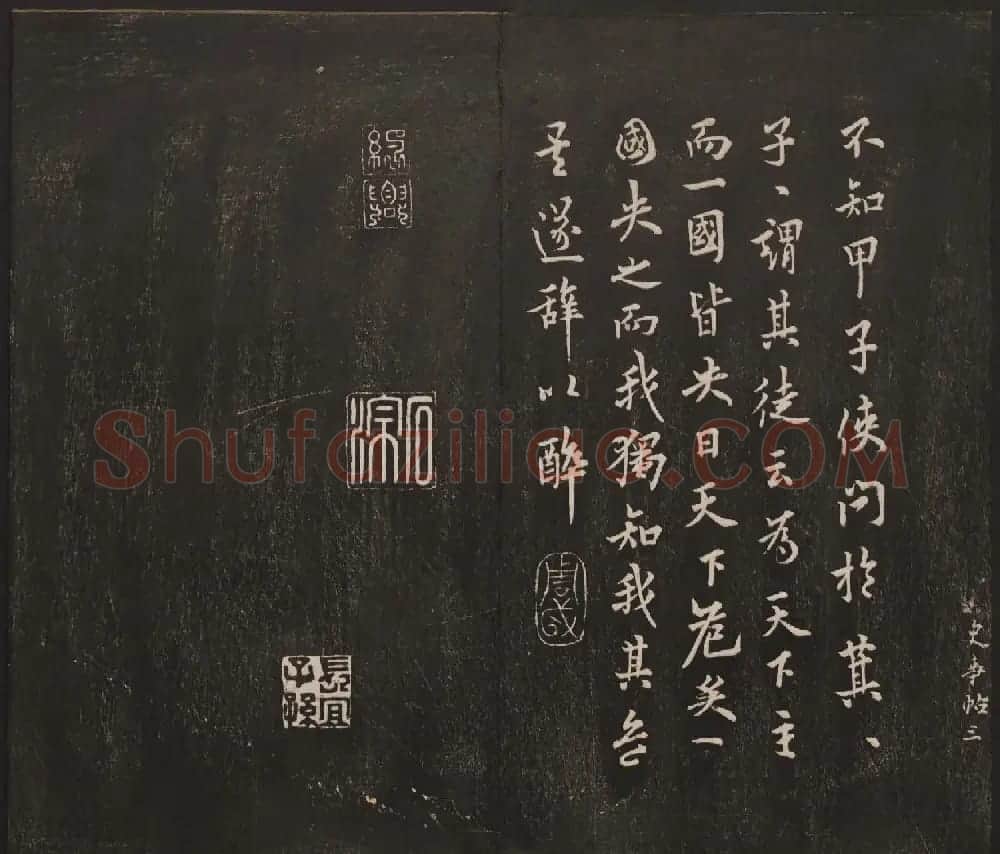 史事帖三
不知甲子使問於箕、
子、謂其徒云為天下主
而一國皆失日天下危矣一
國失之而我獨知我其危
矣遂辞以醉
長宜子孫
Shufaziliao.COM